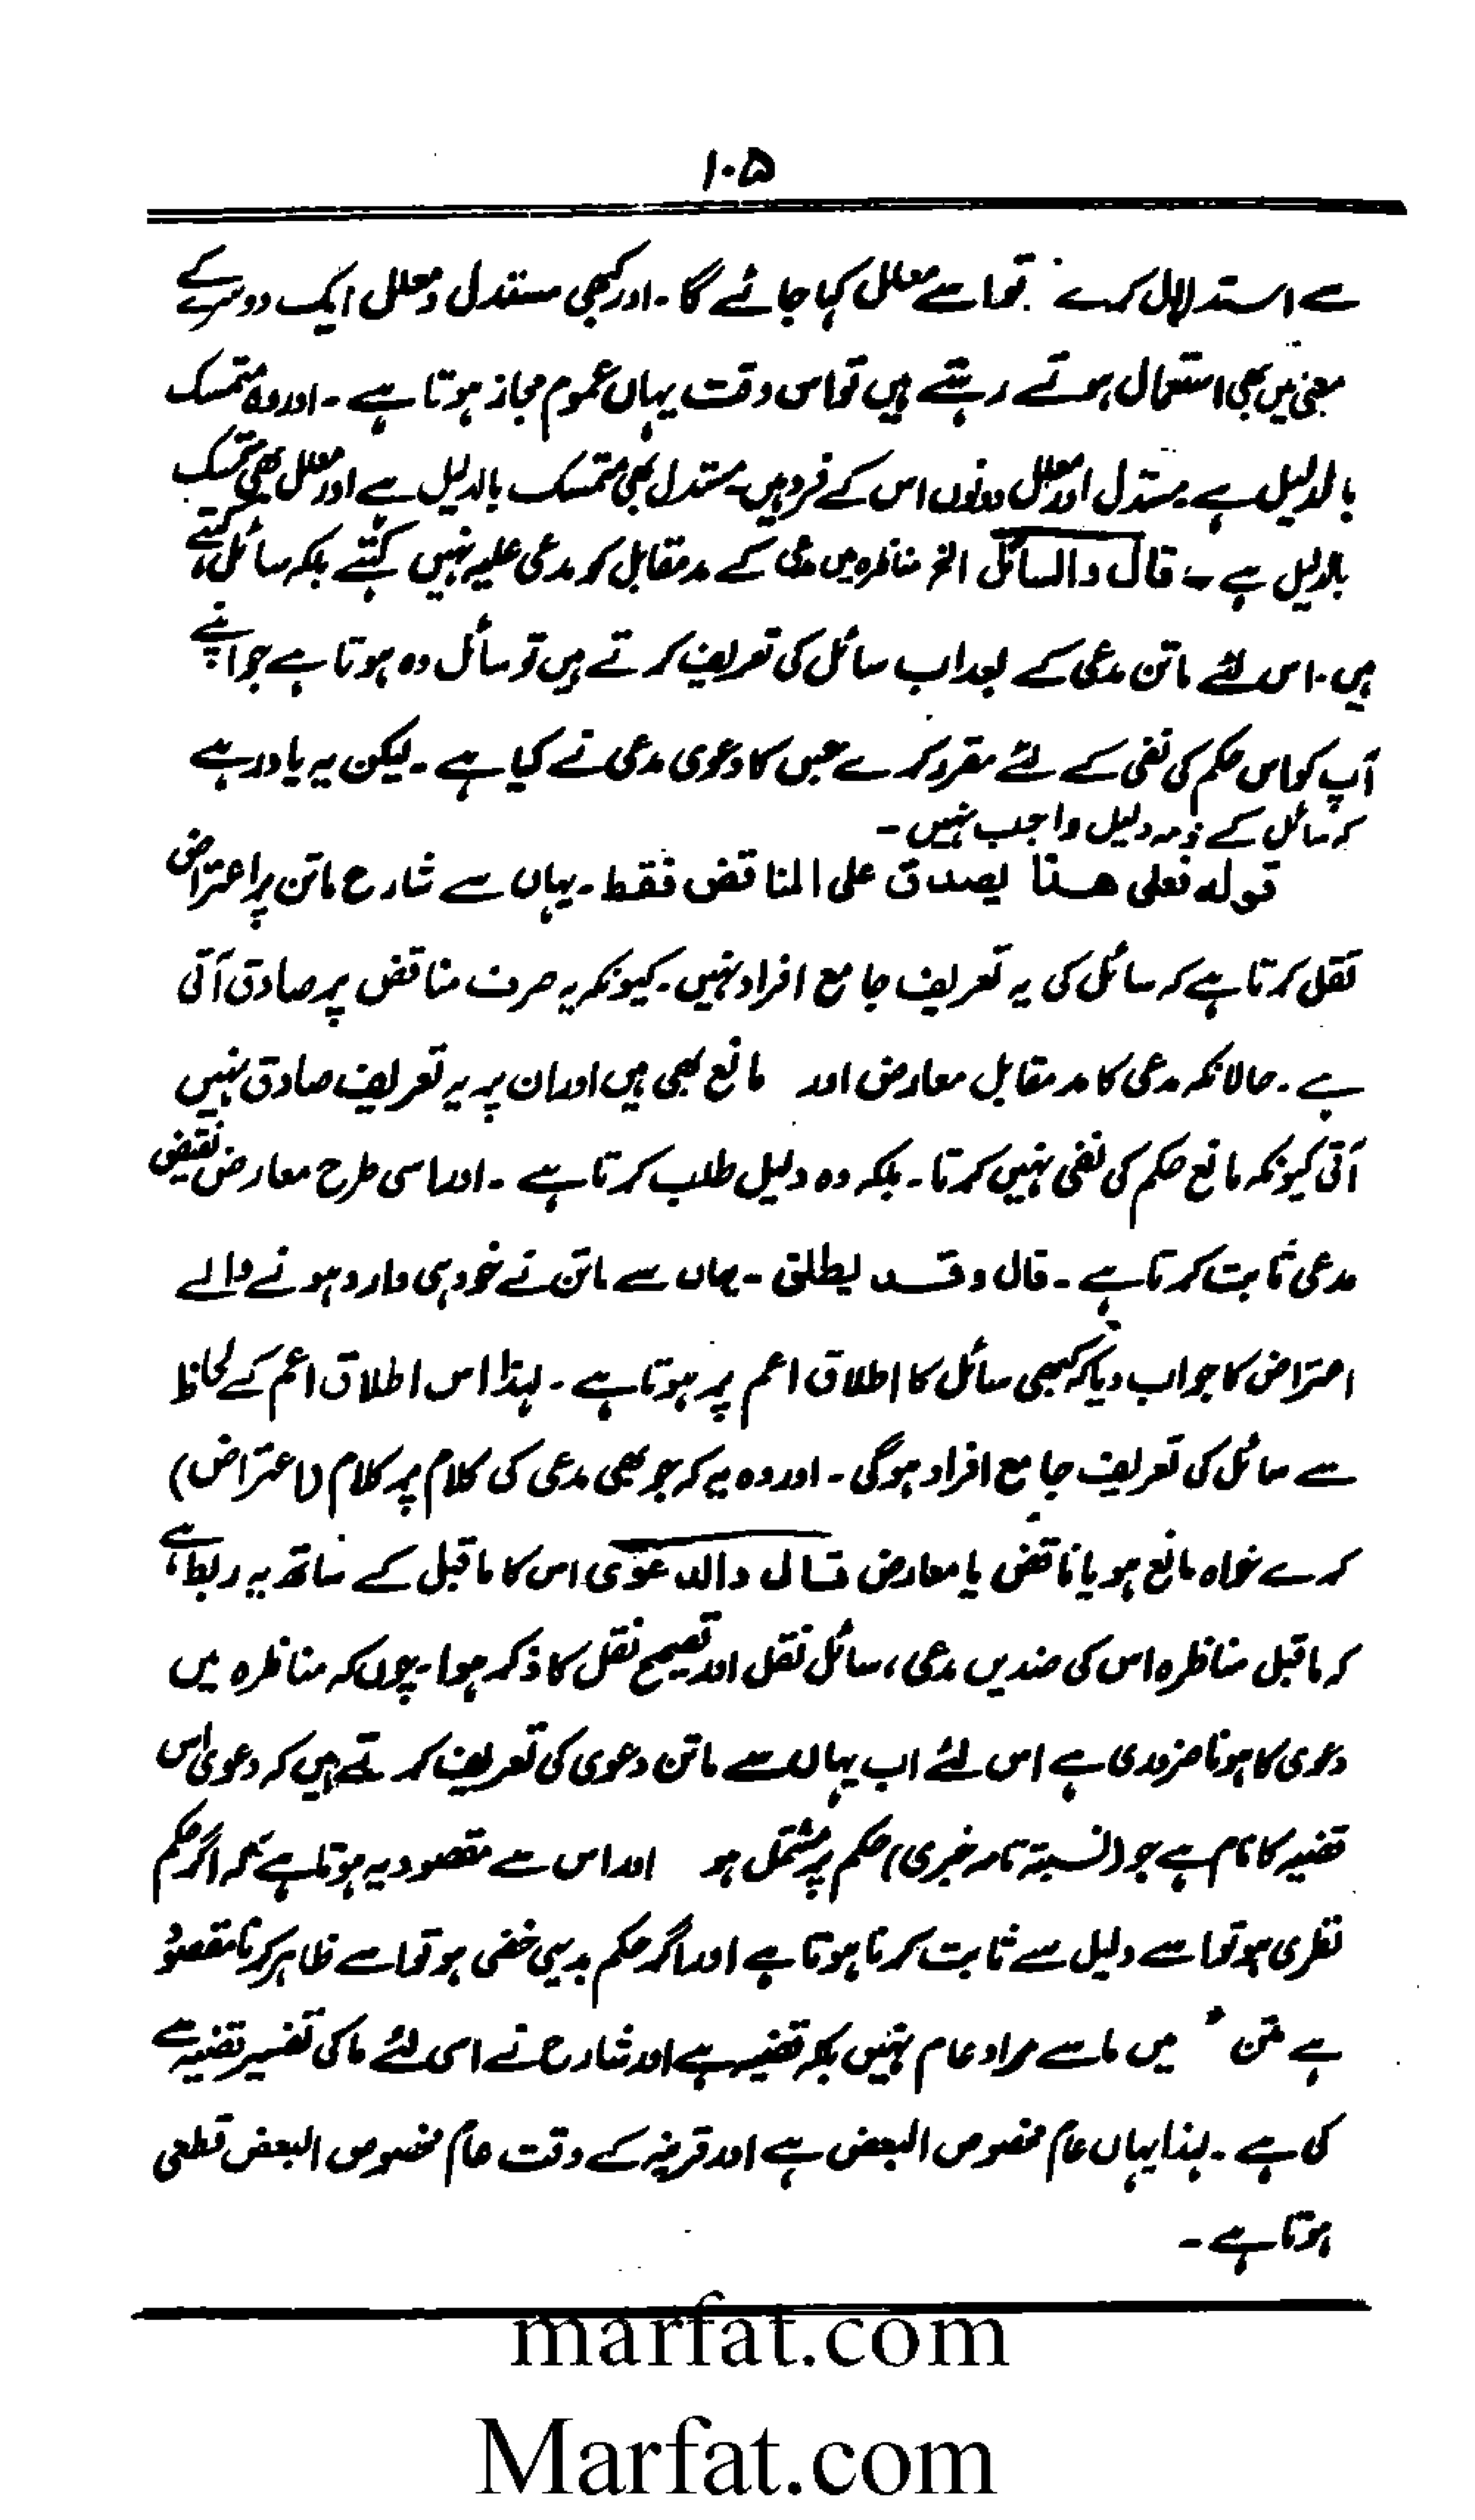 ۱۰۵
سے استدلال کرے تو اسے معلل کہا جائے گا۔ اور کبھی مستدل و معلل ایک دوسرے کے
معنی میں بھی استعمال ہوتے رہتے ہیں تو اس وقت یہاں عموم مجاز ہوتا ہے۔ اور وہ متمسک
بالدلیل ہے۔ مستدل اور معلل دونوں اس کے فرد ہیں۔ مستدل بھی متمسک بالدلیل ہے اور معلل بھی متمسک
بالدلیل ہے۔ قال والسائل الخ مناظرہ میں مدعی کے مدمقابل کو مدعی علیہ نہیں کہتے بلکہ سائل کہتے
ہیں۔ اس لئے ماتن مدعی کے بعد اب سائل کی تعریف کرتے ہیں تو سائل وہ ہوتا ہے جو اپنے
آپ کو اس حکم کی نفی کے لئے مقرر کرے جس کا دعوی مدعی نے کیا ہے۔ لیکن یہ یاد رہے
کہ سائل کے ذمہ دلیل واجب نہیں۔
قولہ فعلی ھذا یصدق علی المناقض فقط۔ یہاں سے شارح ماتن پر اعتراض
نقل کرتا ہے کہ سائل کی یہ تعریف جامع افراد نہیں۔ کیونکہ یہ صرف مناقض پر صادق آتی
ہے۔ حالانکہ مدعی کا مدمقابل معارض اور مانع بھی ہیں اور ان پر یہ تعریف صادق نہیں
آتی کیونکہ مانع حکم کی نفی نہیں کرتا۔ بلکہ وہ دلیل طلب کرتا ہے۔ اور اسی طرح معارض نقیض
مدعی ثابت کرتا ہے۔ قال وقد یطلق۔ یہاں سے ماتن نے خود ہی وارد ہونے والے
اعتراض کا جواب دیا کہ کبھی سائل کا اطلاق اعم پر ہوتا ہے۔ لہذا اس اطلاق اعم کے لحاظ
سے سائل کی تعریف جامع افراد ہوگی۔ اور وہ یہ کہ جو بھی مدعی کی کلام پر کلام (اعتراض)
کرے خواہ مانع ہو یا ناقض یا معارض قال والدعوی اس کا ماقبل کے ساتھ یہ ربط ہے
کہ ماقبل مناظرہ اس کی ضدیں مدعی، سائل نقل اور تصیح نقل کا ذکر ہوا۔ چوں کہ مناظرہ میں
دعوی کا ہونا ضروری ہے اس لئے اب یہاں سے ماتن دعوی کی تعریف کرتے ہیں کہ دعوی اس
قضیہ کا نام ہے جو (نسبۃ تامہ خبری) حکم پر مشتمل ہو اور اس سے مقصود یہ ہوتا ہے کہ اگر حکم
نظری ہو تو اسے دلیل سے ثابت کرنا ہوتا ہے اور اگر حکم بدیہی خفی ہو تو اسے ظاہر کرنا مقصود
ہے متن میں ما سے مراد عام نہیں بلکہ قضیہ ہے اور شارح نے اسی لئے ما کی تفسیر قضیہ سے
کی ہے۔ لہذا یہاں عام مخصوص البعض ہے اور قرینہ کے وقت عام مخصوص البعض قطعی
ہوتا ہے۔
marfat.com
Marfat.com